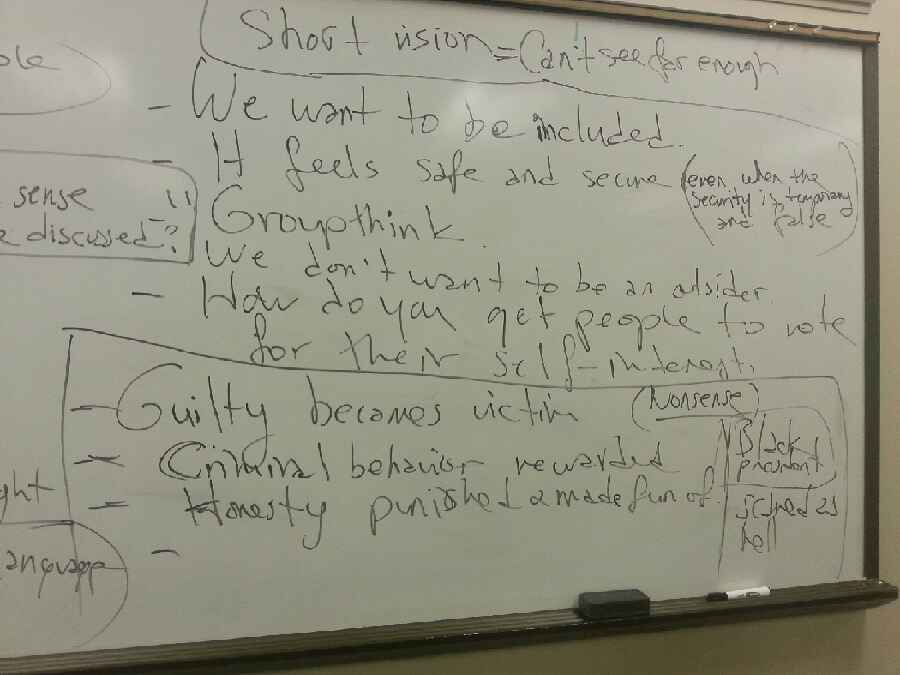 Short vision = Can't see far enough
- We want to be included.
- It feels safe and secure (even when the
security is temporary
and false
- Groupthink.
We don't want to be an outsider.
- How do you get people to vote
for their self-interest.
- Guilty becomes victim (Nonsense)
- Criminal behavior rewarded
- Honesty punished & made fun of.
Black
president
scared as
hell
-
ole
sense
discussed?
ght
anguage